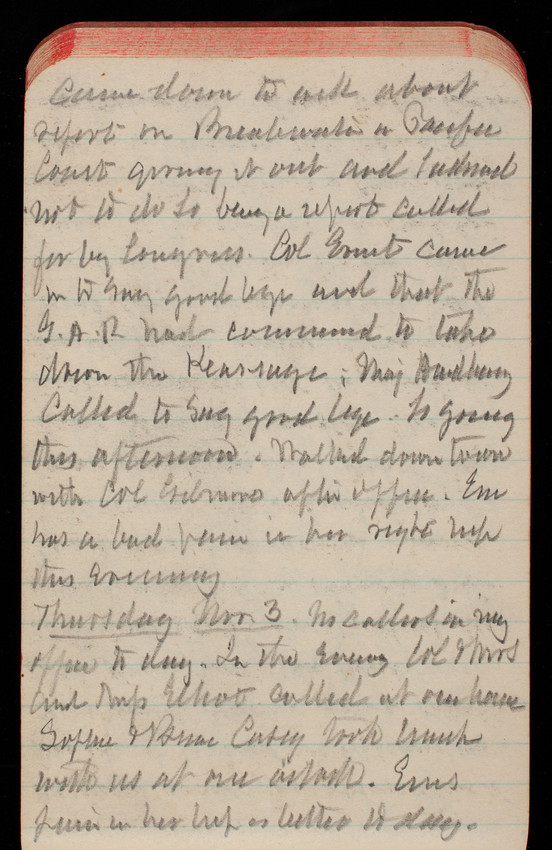 Came down to ask about
report on Breakwater on Pacific
Coast giving it out and
not to do so being a report called
for by Congress. Col Ernst came
in to say good bye and that the
G.A.R had commenced to take
down the Kearsage; Maj Handbury
Called to say good bye. Is going
this afternoon. Walked down town
with Col Gibson after office. Em
has a bad pain in her right hip
this evening
Thursday Nov. 3. No callers in my
office to day. In the evening Col & Mrs
and Miss Elliot called at our house
Sophie & Bessie Casey took lunch
with us at one o'clock. Em's
pain in her hip is better to day.